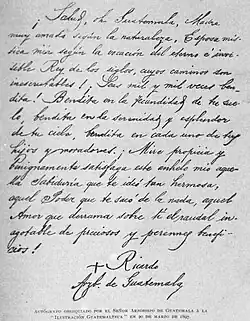 ¡Salud, oh Guatemala, Madre
muy amada según la naturaleza, Esposa mís-
tica mía según la vocación del eterno é invi-
sible Rey de los siglos, cuyos caminos son
inescrutables! ¡Seas mil y mil veces ben-
dita! Bendita en la fecundidad de tu sue-
lo, bendita en la serenidad y esplendor
de tu cielo, bendita en cada uno de tus
hijos y moradores. ¡Mire propicia y
benignamente satisfaga este anhelo mío aque-
lla Sabiduría que te ideó tan hermosa,
aquel Poder que te sacó de la nada, aquel
Amor que derrama sobre ti el raudal in-
agotable de preciosos y perennes benefi-
cios!
+ Ricardo
Arzb. de Guatemala
AUTÓGRAFO OBSEQUIADO POR EL SEÑOR ARZOBISPO DE GUATEMALA Á LA
"ILUSTRACIÓN GUATEMALTECA" EN 30 DE MARZO DE 1897.